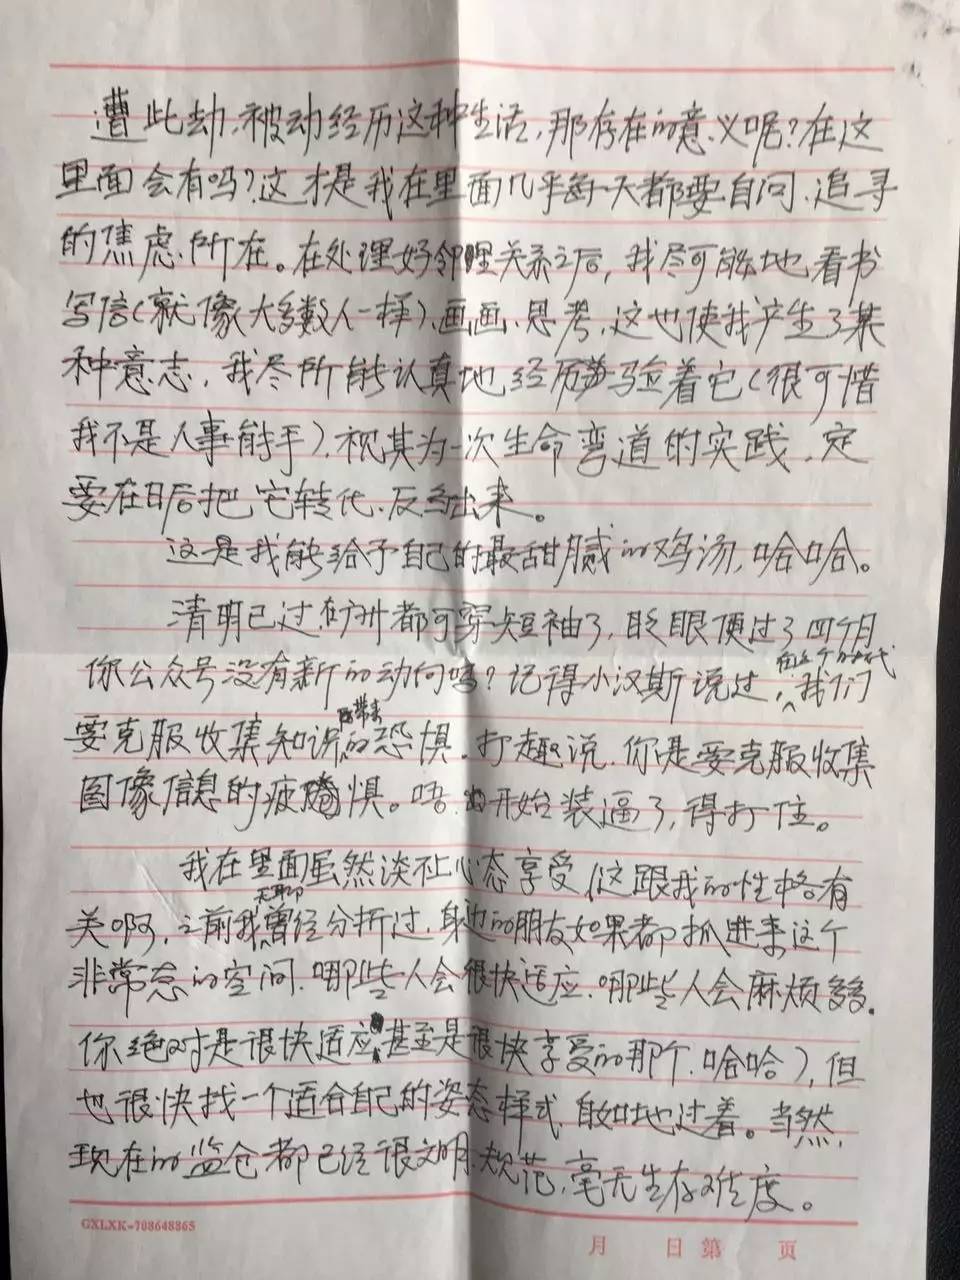 遭此劫、被动经历这种生活,那存在的意义呢?在这
里面会有吗?这才是我在里面几乎每一天都要自问、追寻
的焦虑所在。在处理好邻里关系之后,我尽可能地看书
写信(就像大多数人一样)、画画、思考,这也使我产生了某
种意志,我尽所能认真地经历并验着它(很可惜
我不是人事能手),视其为一次生命弯道的实践,定
要在日后把它转化、反刍出来。
这是我能给予自己的最甜腻的鸡汤,哈哈。
清明已过,在广州都可穿短袖了,眨眼便过了四个月
你公众号没有新的动向吗?记得小汉斯说过,在这个时代我们
要克服收集知识所带来的恐惧。打趣说,你是要克服收集
图像信息的疲惧。唔,开始装逼了,得打住。
我在里面虽然谈不上心态享受(这跟我的性格有
关啊,之前我无聊曾经分析过,身边的朋友如果都抓进来这个
非常态的空间,哪些人会很快适应,哪些人会麻烦多多。
你绝对是很快适应、甚至是很快享受的那个,哈哈),但
也很快找一个适合自己的姿态样式,自如地过着。当然,
现在的监仓都已经很文明、规范,毫无生存难度。
GXLXK-708648865
月 日 第 页